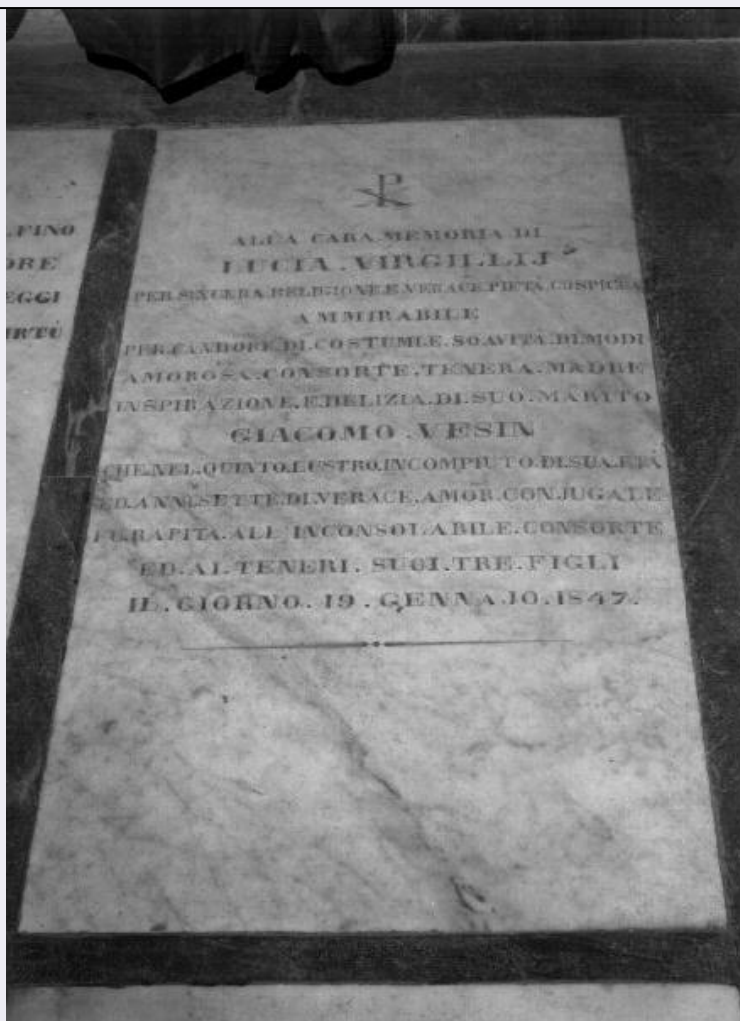 FINO
ORE
EGGI
IRTÙ
ALLA CARA.MEMORIA DI
LUCIA.VIRGILLIJ
PER.SINCERA.RELIGIONE.E.VERACE.PIETÀ.COSPICUA
AMMIRABILE
PER.CANDORE.DI.COSTUMI.E.SOAVITÀ.DI.MODI
AMOROSA.CONSORTE.TENERA.MADRE
INSPIRAZIONE.E.DELIZIA.DI.SUO.MARITO
GIACOMO.VESIN
CHE.NEL.QUINTO.LUSTRO.INCOMPIUTO.DI.SUA.ETÀ
ED.ANNI.SETTE.DI.VERACE.AMOR.CONJUGALE
FU.RAPITA.ALL'INCONSOLABILE.CONSORTE
ED.AI.TENERI.SUOI.TRE.FIGLI
IL.GIORNO.19.GENNAJO.1847.